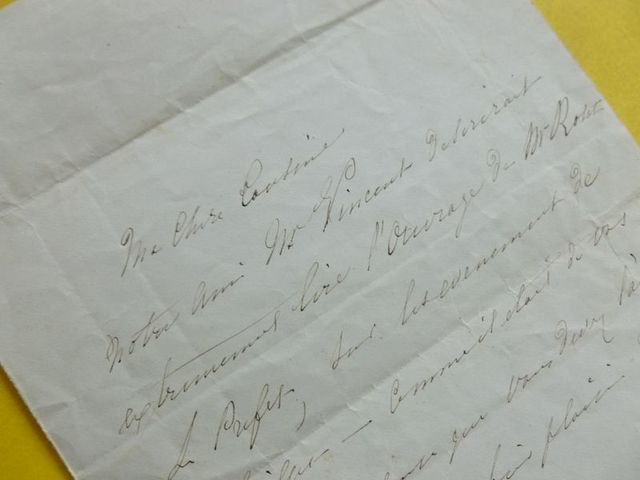 Ma Chère Cousine
Notre Ami Mr Vincent desirerait
extremement lire l'Ouvrage de Mr
Le Prefet, sur les evenement de
comme il etait de vos
que vous
plaisir